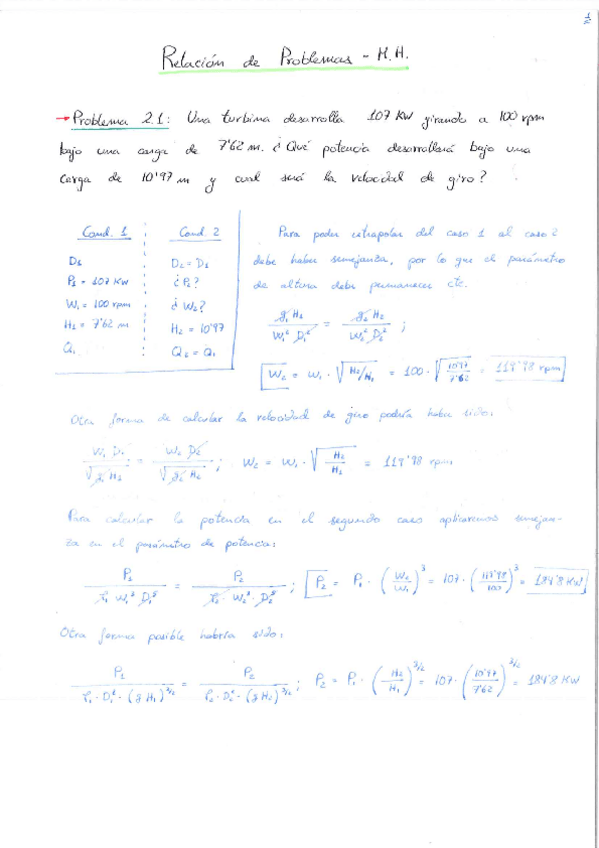 1/2
Relación de Problemas - M.H.
→ Problema 2.1: Una turbina desarrolla 107 KW girando a 100 rpm
bajo una carga de 7'62 m. ¿Qué potencia desarrollará bajo una
carga de 10'97 m y cual será la velocidad de giro?
Cond. 1 Cond. 2
D1 D2 = D1
P1 = 107 KW ¿P2?
W1 = 100 rpm ¿W2?
H1 = 7'62 m H2 = 10'97
Q1 Q2 = Q1
Para poder extrapolar del caso 1 al caso 2
debe haber semejanza, por lo que el parámetro
de altura debe permanecer cte.
g1 H1 / W1² D1² = g2 H2 / W2² D2² ;
W2 = W1 · √(H2/H1) = 100 · √(10'97/7'62) = 119'98 rpm
Otra forma de calcular la velocidad de giro podría haber sido:
W1 D1 / √(g1 H1) = W2 D2 / √(g2 H2) ; W2 = W1 · √(H2/H1) = 119'98 rpm
Para calcular la potencia en el segundo caso aplicaremos semejan-
za en el parámetro de potencia:
P1 / ρ1 W1³ D1⁵ = P2 / ρ2 · W2³ · D2⁵ ; P2 = P1 · (W2/W1)³ = 107 · (119'98/100)³ = 184'8 KW
Otra forma posible habría sido:
P1 / ρ1 · D1² · (g H1)^3/2 = P2 / ρ2 · D2² · (g H2)^3/2 ; P2 = P1 · (H2/H1)^3/2 = 107 · (10'97/7'62)^3/2 = 184'8 KW